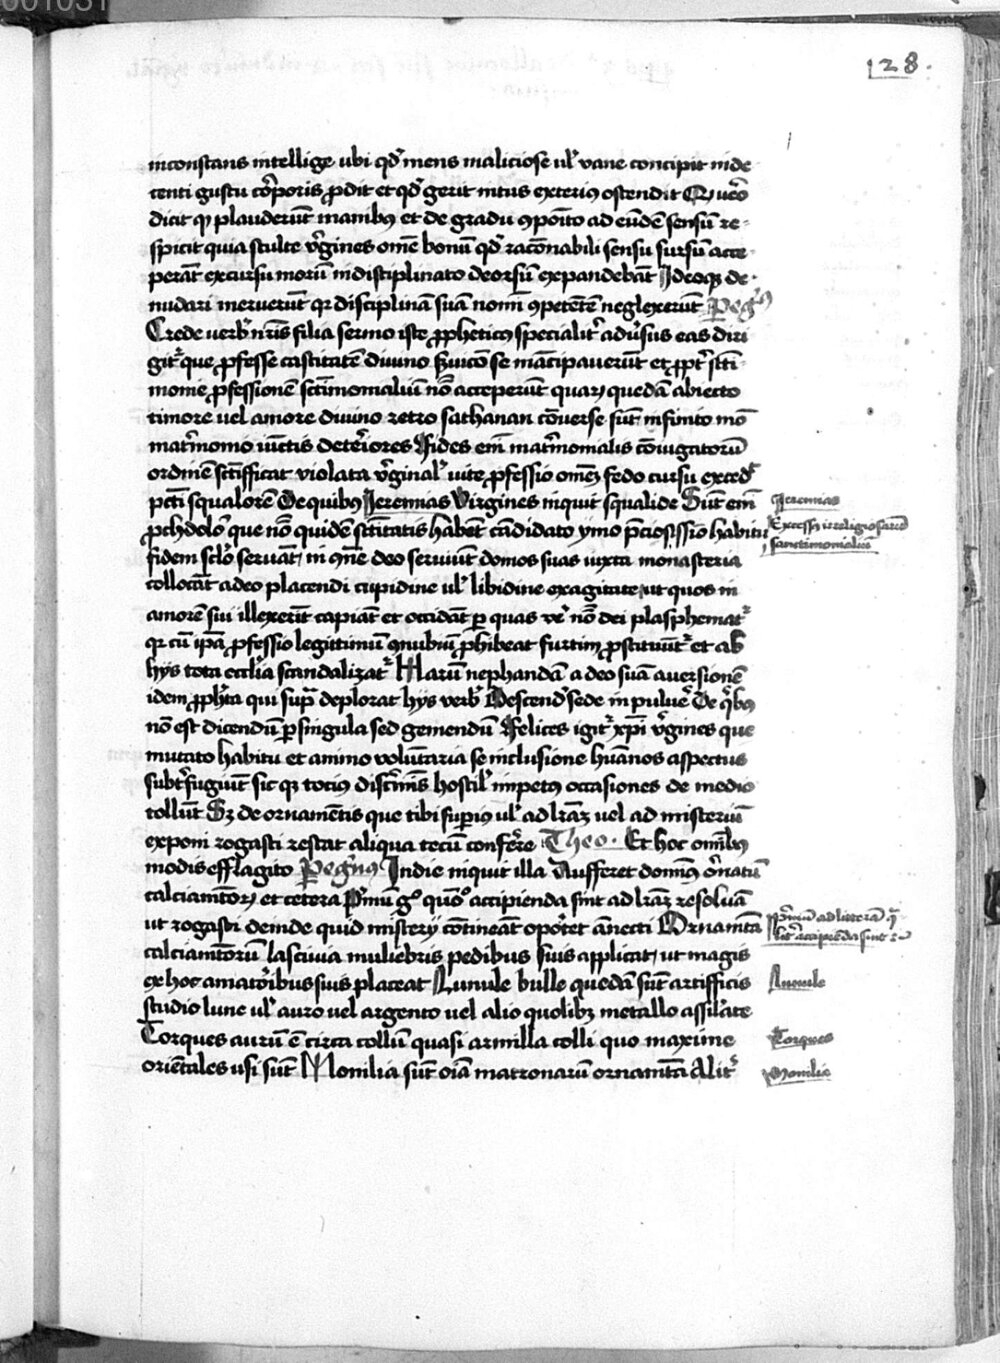 001031
128.
inconstans intellige ubi qd' mens maliciose ul' vane concipit inde-
centi gustu cor̄poris ꝓdit et qd' gerit intus exterius ostendit Qu vero
dicit ꝙ plauderūt manibꝰ et de gradu ꝯpoīto ad eūdē sensū re-
spicit quia stulte v'gines omē bonū qd' racōnabili sensu sursū acce-
perāt excursu morū indisciplinato deorsū expandebāt Ideoqꝫ de-
nudari meruerūt qr disciplinā suā nomī ꝯpetētē neglexerūt Peg'nꝰ
Crede verbis nr̄is filia sermo iste ꝓpheticꝰ specialit' adv'sus eas diri
git' que ꝓfesse castitatē divino s'vicō se mācipaverūt et ꝓpt' scti-
monie ꝓfessionē sctīmonialiū nō acceperūt quarꝫ quedā abiecto
timore vel amore divino retro sathanan cōverse sūt infinito mō
mat'monio iūctis det'iores Fides em̄ mat'monialis cōiugatorū
ordinē sctīfficat violata v'ginal' vite ꝓfessio omēs fedo cursu exced'
pctī squalorē De quibꝰ Jeremias Virgines inquit squalide Sūt em̄
ꝓchdolor que nō quidē sctītatis habēt cādidato ymo p̄ciosissīo habitu
fidem scl'o servāt, in q̄ne deo serviūt domos suas iuxta monasteria
collocāt adeo placendi cupidine ul' libidine exagitate, ut quos in
amorē sui illexerīt capiāt et occidāt ꝑ quas ve' nō dei plasphemat'
qr cū ip̄a ꝓfessio legittimū ꝯnubiū ꝓhibeat furtim ꝓstituūt' et ab
hys tota eccl'ia scandalizat' Harū nephandā a deo suā aversionē
idem ꝓph'ta qui sup̄ deplorat hys verb' Descend' sede in pulue' De q'bꝰ
nō est dicendū ꝑ singula sed gemendū Felices igit' xp̄i v'gines que
mutato habitu et animo volūtaria se inclusione hūanos aspectus
subt'fugiūt sic qꝫ tocius disc'mīs hostil' impetꝰ occasiones de medio
tollūt Sꝫ de ornamētis que tibi supiꝰ ul' ad lr̄am vel ad misteriū
exponi rogasti restat aliqua tecū confer̄e Theo. Et hoc omībꝰ
modis efflagito Peg'nꝰ In die inquit illa Aufferet domīꝰ or̄natū
calciamtorꝫ et cetera P'mū g° quō accipienda sint ad lr̄am resolvā
ut rogasti deinde quid mistery cōtineāt opor̄tet ānecti Ornamta
calciamtorū lascivia muliebris pedibus suis applicat, ut magis
ex hoc amatoribus suis placeat Lunule bulle quedā sūt artifficis
studio lune ul' auro vel argento vel alio quolibꝫ metallo assil'ate
Torques aurū ē circa collū quasi armilla colli quo maxime
oriētales usi sūt Monilia sūt oīa matronarū ornamta Alit'
Jeremias
Excessꝰ irreligiosarū
sanctimonialiū
P'mū ad litterā q̄
lit' accipiēda sint
Lunule
Torques
Monilia